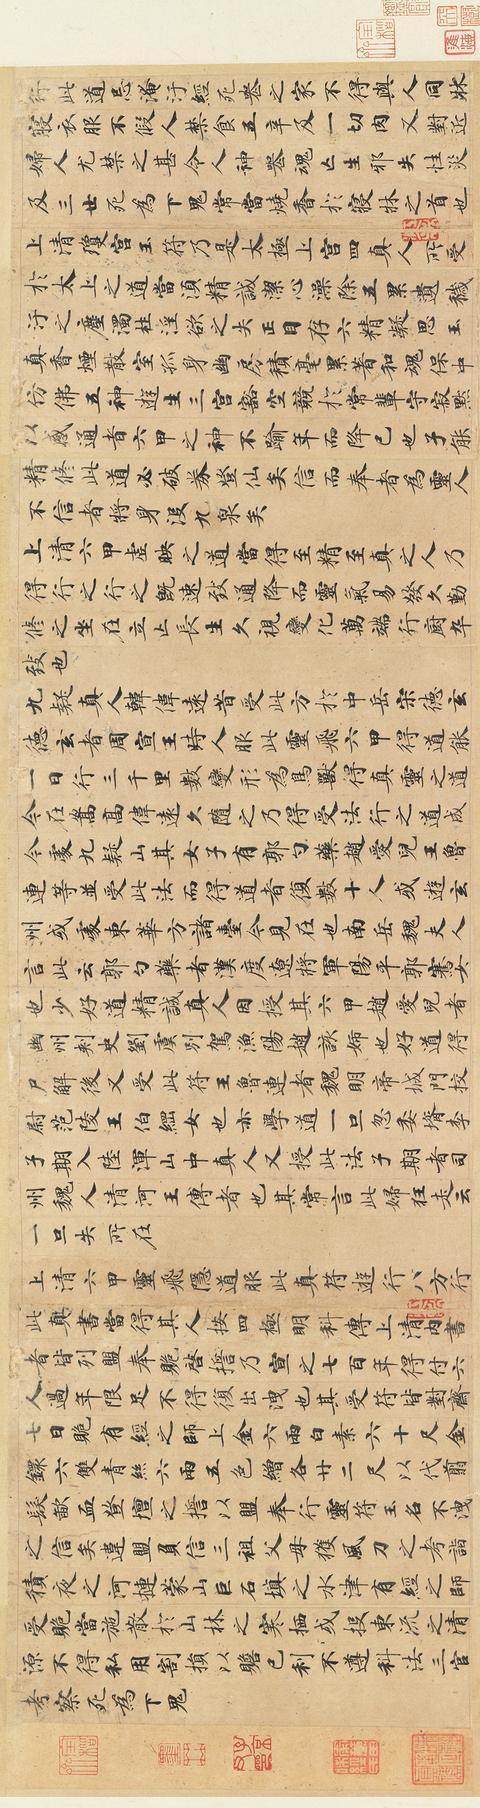 行此道忌淹汙經死喪之家不得與人同牀
寢衣服不假人禁食五辛及一切肉又對近
婦人尤禁之甚令人神喪魂亡生邪失性災
及三世死為下鬼常當燒香於寢牀之首也
上清瓊宮玉符乃是太極上宮四真人所受
於太上之道當須精誠潔心澡除五累遺穢
汙之塵濁杜淫欲之失正目存六精凝思玉
真香煙散室孤身幽房積毫累著和魂保中
仿佛五神遊生三宮豁空競於常輩守寂默
以感通者六甲之神不踰年而降己也子能
精修此道必破券登仙矣信而奉者為靈人
不信者將身沒九泉矣
上清六甲虛映之道當得至精至真之人乃
得行之行之既速致通降而靈氣易發久勤
修之坐在立亡長生久視變化萬端行廚卒
致也
九疑真人韓偉遠昔受此方於中岳宋德玄
德玄者周宣王時人服此靈飛六甲得道能
一日行三千里數變形為鳥獸得真靈之道
今在嵩高偉遠久隨之乃得受法行之道成
今處九疑山其女子有郭勺藥趙愛兒王魯
連等並受此法而得道者復數十人或遊玄
州或處東華方諸臺今見在也南岳魏夫人
言此云郭勺藥者漢度遼將軍陽平郭騫女
也少好道精誠真人因授其六甲趙愛兒者
幽州刺史劉虞別駕漁陽趙該婦也好道得
尸解後又受此符王魯連者魏明帝城門校
尉范陵王伯綱女也亦學道一旦忽委壻李
子期入陸渾山中真人又授此法子期者司
州魏人清河王傳者也其常言此婦狂走云
一旦失所在
上清六甲靈飛隱道服此真符遊行八方行
此真書當得其人按四極明科傳上清內書
者皆列盟奉贶啓誓乃宣之七百年得付六
人過年限足不得復出洩也其受符皆對齋
七日贶有經之師上金六兩白素六十尺金
鐶六雙青絲六兩五色繒各廿二尺以代翦
髮歃血登壇之誓以盟奉行靈符玉名不洩
之信矣違盟負信三祖父母獲風刀之考詣
積夜之河摙蒙山巨石填之水津有經之師
受贶當施散於山林之寒栖或投東流之清
源不得私用割損以贍己利不遵科法三官
考察死為下鬼